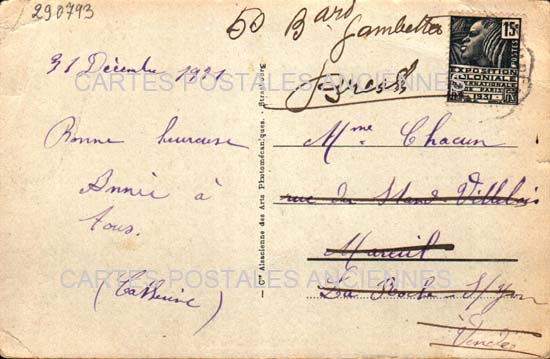 290793
50 Bard
Gambetta
15c
POSTES
EXPOSITION
COLONIALE
INTERNATIONALE
PARIS 1931
31 Décembre 1931
CARTES POSTALES ANCIENNES
Bonne heureuse
Année à
tous.
Cie Alsacienne des Arts Photomécaniques. - Strasbourg
Mme Chacun
rue du
Mareuil
La Roche-s/Yon
Vendée
CARTES POSTALES ANCIENNES